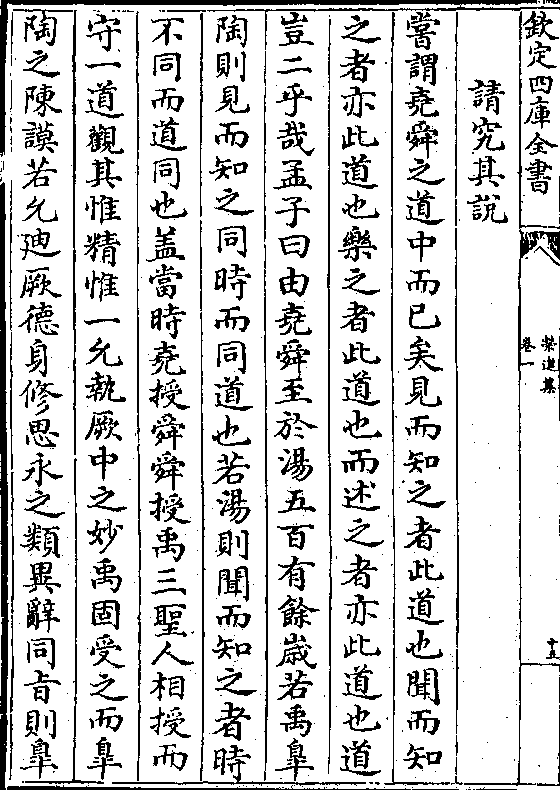 欽定四庫全書
榮進集
卷一
十五
請究其說
嘗謂堯舜之道中而已矣見而知之者此道也聞而知
之者亦此道也樂之者此道也而述之者亦此道也道
豈二乎哉孟子曰由堯舜至於湯五百有餘歲若禹臯
陶則見而知之同時而同道也若湯則聞而知之者時
不同而道同也盖當時堯授舜舜授禹三聖人相授而
守一道觀其惟精惟一允執厥中之妙禹固受之而臯
陶之陳謨若允廸厥德身修思永之類異辭同旨則臯